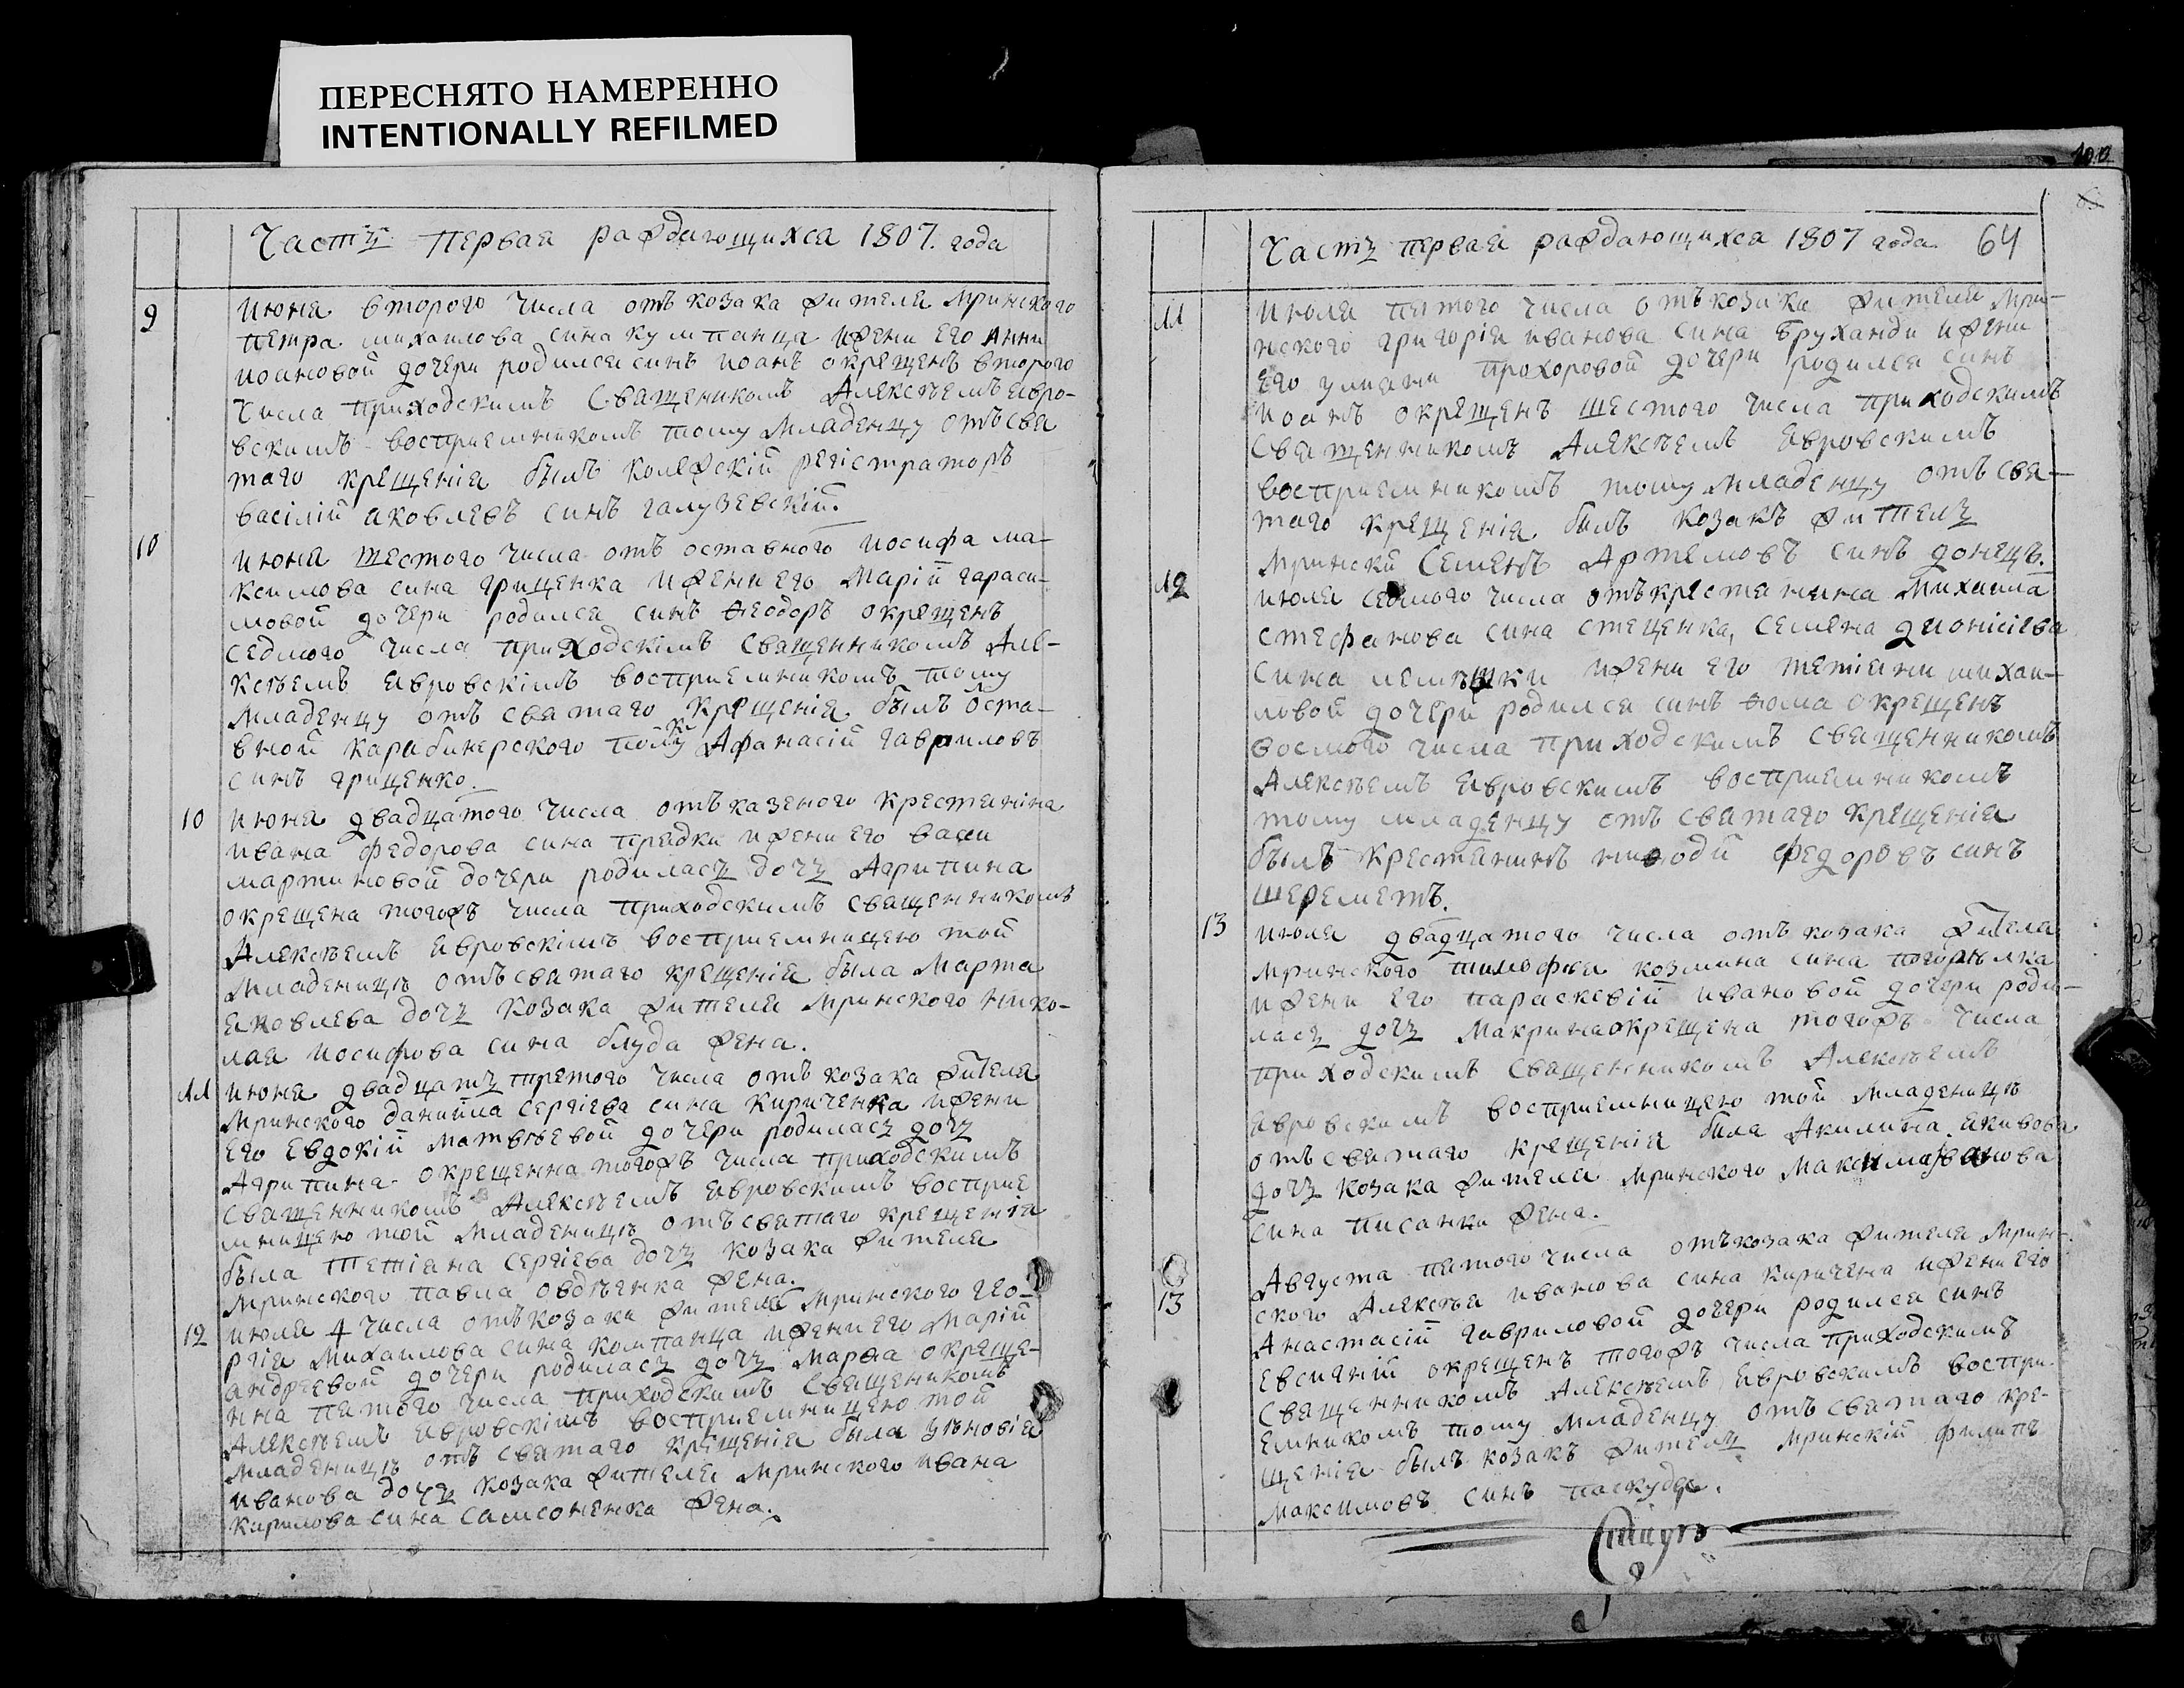 ПЕРЕСНЯТО НАМЕРЕННО
INTENTIONALLY REFILMED
Часть первая раждающихся 1807. года
9
июня второго числа отъ козака жителя мринского
петра михаилова сина кумпанца ижени его Анни
иоановой дочери родился синъ иоанъ окрещенъ второго
числа приходскимъ Священикомъ Алексѣемъ явро-
вскимъ восприемникомъ тому младенцу отъ свя
таго крещенія былъ колежскій регістраторъ
васілій яковлевъ синъ галузевскій.
10
июня шестого числа отъ оставного иосифа ма-
ксимова сина грищенка ижени его Марій гараси-
мовой дочери родился синъ ѳеодоръ окрещенъ
седмого числа приходскімъ священникомъ Але-
ксѣемъ явровскімъ восприемникомъ тому
младенцу отъ святаго крещенія былъ оста-
вной карабинерского полку Афанасій гавриловъ
синъ грищенко.
10
июня двадцатого числа отъ казеного крестяніна
ивана федорова сина прядки ижени его васи
мартиновой дочери родилась дочь Агрипина
окрещена тогожъ числа приходскимъ священникомъ
Алексѣемъ явровскімъ восприемницею той
младеницѣ отъ святаго крещенія была Марта
яковлева дочь козака жителя мринского нико-
лая иосифова сина блуда жена.
11
июня двадцать третого числа отъ козака жителя
мринского даниила сергіева сина кириченка ижени
его Евдокій матвѣевой дочери родилась дочь
Агрипина окрещенна тогожъ числа приходскимъ
священникомъ Алексѣемъ явровскимъ восприе
мницею той младеницѣ отъ святаго крещенія
была тетіяна сергіева дочь козака жителя
мринского павла овдѣенка жена.
12
июля 4 числа отъ козака жителя мринского гео-
ргія михаилова сина компанца ижени его Марій
андреевой дочери родилась дочь марѳа окреще-
нна пятого числа приходскимъ священикомъ
Алексѣемъ явровскімъ восприемницею той
младеницѣ отъ святаго крещенія была зѣновія
иванова дочь козака жителя мринского ивана
кирилова сина самсоненка жена.
Часть первая раждающихся 1807 года. 64
11
июля пятого числа отъ козака жителя мри-
нского григорія иванова сина бруханди ижени
его улияни прохоровой дочери родился синъ
иоанъ окрещенъ шестого числа приходскимъ
священникомъ Алексѣемъ явровскимъ
восприемникомъ тому младенцу отъ свя-
таго крещенія былъ козакъ житель
мринскій Семенъ Артемовъ синъ донецъ.
12
июля седмого числа отъ крестянина михаила
стефанова сина стеценка, семена дионісіева
сина ижени его тетіяни михаи-
ловой дочери родился синъ ѳома окрещенъ
восмого числа приходскимъ священникомъ
Алексѣемъ явровскимъ восприемникомъ
тому младенцу отъ святаго крещенія
былъ крестянинъ федоровъ синъ
шереметъ.
13
июля двадцатого числа отъ козака жителя
мринского тимофѣя козмина сина погорѣлка
ижени его параскевій ивановой дочери роди-
лась дочь макрина окрещена тогожъ числа
приходскимъ священникомъ Алексѣемъ
явровскимъ восприемницею той младеницѣ
отъ святаго крещенія была Акилина якивова
дочь козака жителя мринского максима иванова
сина писанки жена.
13
Августа пятого числа отъ козака жителя мрин-
ского Алексѣя иванова сина киричена ижени его
Анастасій гавриловой дочери родился синъ
евсигній окрещенъ тогожъ числа приходскимъ
священникомъ Алексѣемъ явровскимъ воспри-
емникомъ тому младенцу отъ святаго кре-
щенія былъ козакъ житель мринскій филипъ
максимовъ синъ паскуда.